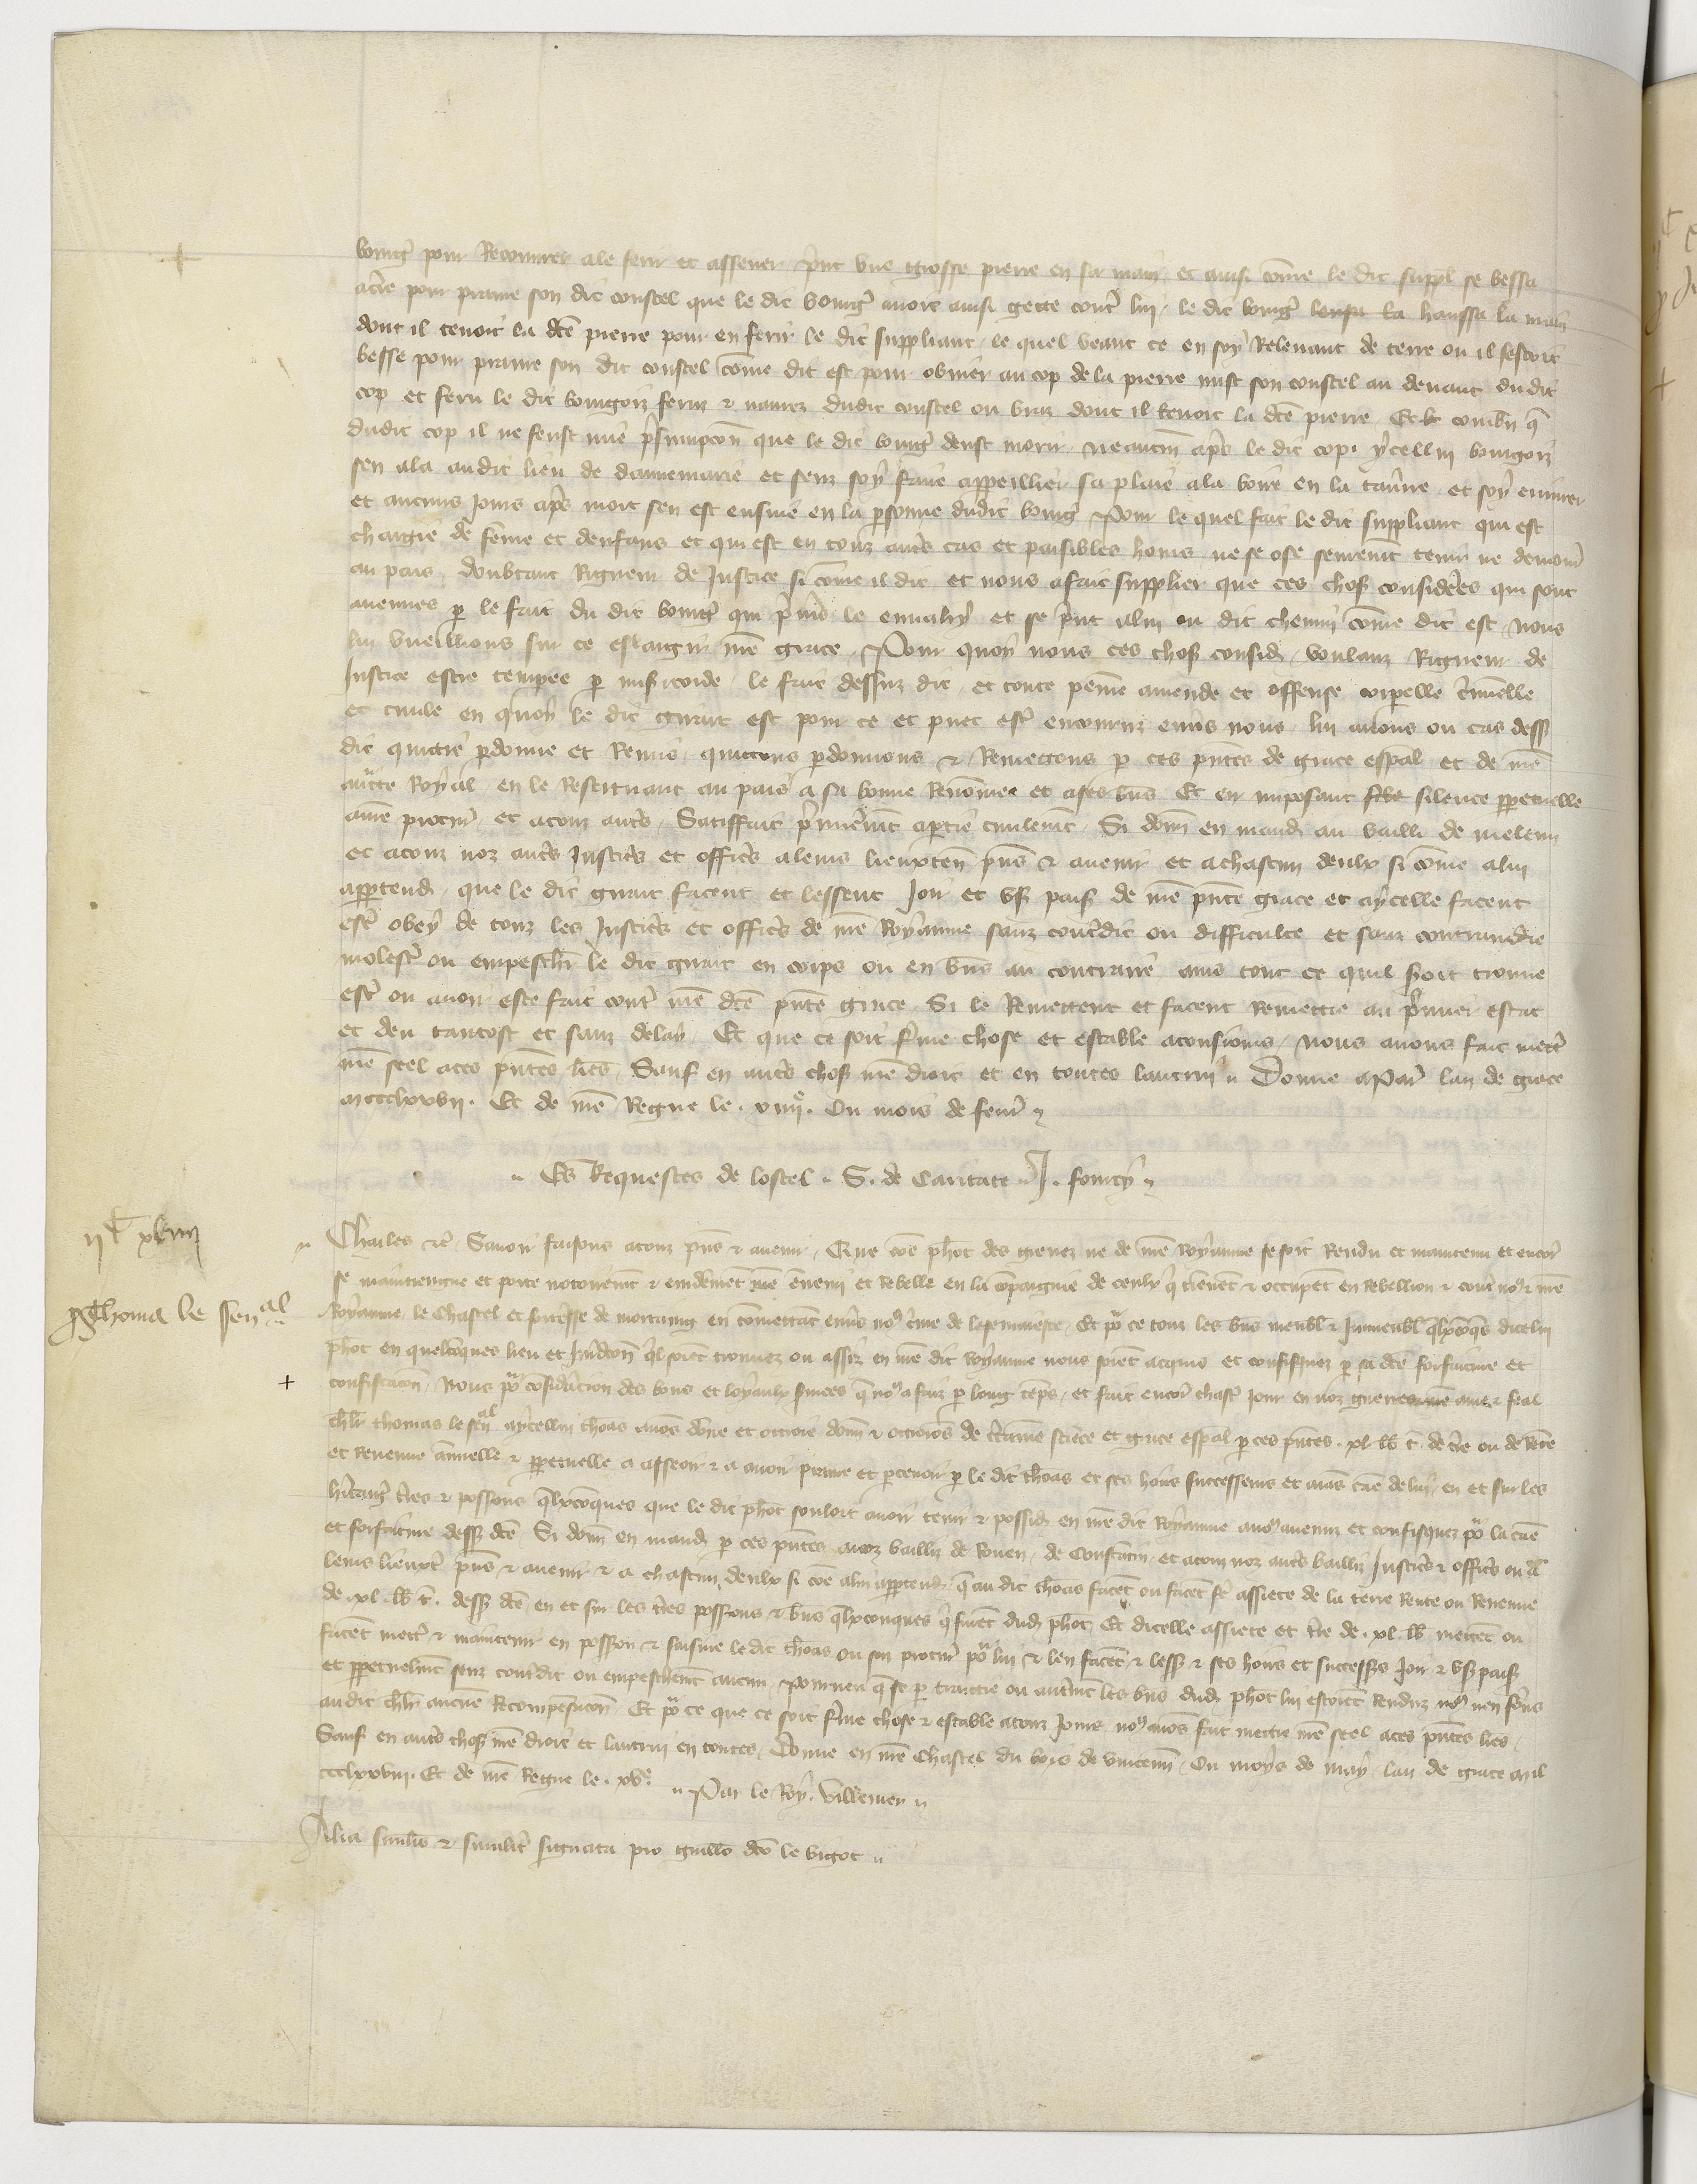 bouig̃ pour Recouurer ale ferir et assener prit vne grosse pierre en sa main et ainsi cõme le dit suppl se bessa
at̃re pour pranre son dit coustel que le dit bouig̃ auoit ainsi gette cont̃ lui le dit bouig̃ haussa la main
dont il tenoit la dc̃e pierre pour en ferir le dit suppliant le quel veant ce en soy Releuant de terre ou il sestoit
besse pour pranre son dit coustel cõme dit est pour obuier au cop de la pierre mist son coustel au deuant du dit
cop et feru le dit bouigon feruz & naurez dudit coustel ou braz dont il tenoit la dc̃e pierre Et combñ q̃
dudit cop il ne feust mie p̃sumpcõn que le dit bouig̃ deust morir neantm̃ ap̃s le dit cop ycellui bouigon
sen ala audit lieu de dannemarie et senz soy faire appeillier sa plaie ala boire en la tauñe et soy eniurer
et aucuns Jours ap̃s mort sen est ensuie en la p̃sonne dudit bouig̃ Pour le quel fait le dit suppliant qui est
chargie de fem̃e et denfans et qui est en touz aut̃s cas et paisibles homs ne se ose seurem̃t tenir ne demour̃
au pais doubtant Rigueur de Justice si cõme il dit et nous a fait supplier que ces chos̃ considerees qui sont
auenues p̃ le fait du dit bouig̃ qui p̃mier le enuahy et se prit alui ou dit chemin cõme dit est nous
lui vueillions sur ce eslargir nr̃e grace Pour quoy nous ces chos̃ consid̃ voulanz Rigueur de
Justice estre tempee p̃ misicorde le fait dessuz dit et toute peine amende et offense corpelle c̃iminelle
et ciuile en quoy le dit suppliant est pour ce et puet est̃ encouruz enũs nous lui auons ou cas dess̃
dit quictie p̃donne et Remis quictons p̃donnons & Remectons p̃ ces pñtes de grace esp̃al et de nr̃e
auc̃te Royal en le Restituant au pais a sa bonne Renõmee et a ses bñs Et en imposant silence p̃petuelle
anr̃e procur̃ et a touz aut̃s Satiffait p̃mierem̃t a p̃tie ciuilem̃t Si donñ en mand̃ au bailli de meleun
et a touz noz aut̃s Justic̃s et offic̃s a leurs lieuxteñ p̃ns & auenir et a chascun deulx si cõme a lui
app̃tend̃ que le dit suppliant facent et lessent Joir et vs̃ pais̃ de nr̃e pñte grace et a ycelle facent
est̃ obey de touz les Justic̃s et offic̃s de nr̃e Royaume sanz cont̃dit ou difficulte et sanz contraindre
molest̃ ou empesch̃ le dit suppliant en corps ou en bñs au contraire ains tout ce quil soit trouue
est̃ ou auoir este fait cont̃ nr̃e dc̃e pñte grace Si le Remettent et facent Remettre au p̃mier estat
et deu tantost et sanz delay Et que ce soit fer̃me chose et estable a tousiours nous auons fait mett̃
nr̃e seel a ces pñtes lr̃es Sauf en aut̃s chos̃ nr̃e droit et en toutes lautrui Donne a Par̃ lan de grace
mccclxxvij. Et de nr̃e Regne le . xiiij.e Ou mois de feur̃
Es Requestes de lostel S. de Caritate J. fouicy
ijC xlviij
Charles etc̃ Sauoir faisons a touz p̃ns & auenir Que cõe phot des grenez ne de nr̃e Royaume se soit Rendu et maintenu et encor̃
se maintiengne et porte notoirem̃t & euidem̃et nr̃e ennemi et Rebelle en la cõpaignie de ceulx q̃ tienẽt & occupẽt en Rebellion & cont̃ no9 & nr̃e
p̃ Thoma le senal
Royaume le Chastel et fort̃esse de mortaing en cõmettãt enũs no9 c̃ime de lesemaiestе Et po2 ce touz les bñs meubl̃ & Jnmeubl̃ q̃lxcõq̃s dicelui
phot en quelcõques lieu et Juridcõn q̃l soiẽt trouuez ou assiz en nr̃e dit Royaume nous soiẽt acquis et confisquez p̃ sa dc̃e forfaiture et
confiscacõn Nous po2 cõsidãcion des bons et loyaulx seruices q̃ no9 a faiz p̃ long tẽps et fait encor̃ chasc̃ Jour en noz guerres nr̃e ame & feal
ch̃lr thomas le senal aycellui thõas auõs dõne et octroie donñ & octroiõs de c̃taine sciẽce et grace esp̃al p̃ ces pñtes . xl. lb. t̃. de t̃re ou de Rẽte
et Reuenue ãnuelle & p̃petuelle a asseoir & a auoir prãre et p̃ceuoir p̃ le dit thõas et ses hoirs successeurs et aians cãe de lui en et sur les
h̃itaig̃ t̃res & possions q̃lxcõques que le dit phot souloit auoir tenir & possid̃ en nr̃e dit Royaume a no9 auenuz et confisquez po2 la cãe
et forfaiture dess̃ dc̃e Si donñ en mand̃ p̃ ces pñtes a noz bailliz de Rouen de Constãtin et a touz noz aut̃s bailliz Justic̃s & offic̃s ou a
leurs lieuxt̃ p̃ns & auenir & a chascun deulx si cõe alui app̃tend̃ q̃ au dit thõas facẽt ou facẽt fe͂ assiete de la terre Rente ou Reuenue
de . xl. lb. t̃. dess̃ dc̃e en et sur les t̃res possions & bñs q̃lxconques q̃ furẽt dud̃ phot Et dicelle assiete et t̃re de . xl. lb. mettẽt ou
facẽt mett̃ & maintenir en possion & saisine le dit thõas ou son procur̃ po2 lui & len facẽt & less̃ & ses hoirs et success̃s Joir & vs̃ pais̃
et p̃petuelm̃t senz cont̃dit ou empeschem̃t aucun Pourueu q̃ se p̃ traictie ou autrem̃t les bñs dud̃ phot lui estoiẽt Renduz no9 nen ser̃ns
audit ch̃lr aucũe Recompẽsacõn Et po2 ce que ce soit fer̃me chose & estable a touz Jours no9 auõs fait mettre nr̃e seel a ces pñtes lr̃es
Sauf en aut̃s chos̃ nr̃e droit et lautrui en toutes Donne en nr̃e Chastel du bois de vincenñ Ou moys de may lan de grace mil
ccclxxviij. Et de nr̃e Regne le . xv.e Par le Roy. Villemer
Alia simil̃is & similit̃ signata pro guill̃o dc̃o le bigot